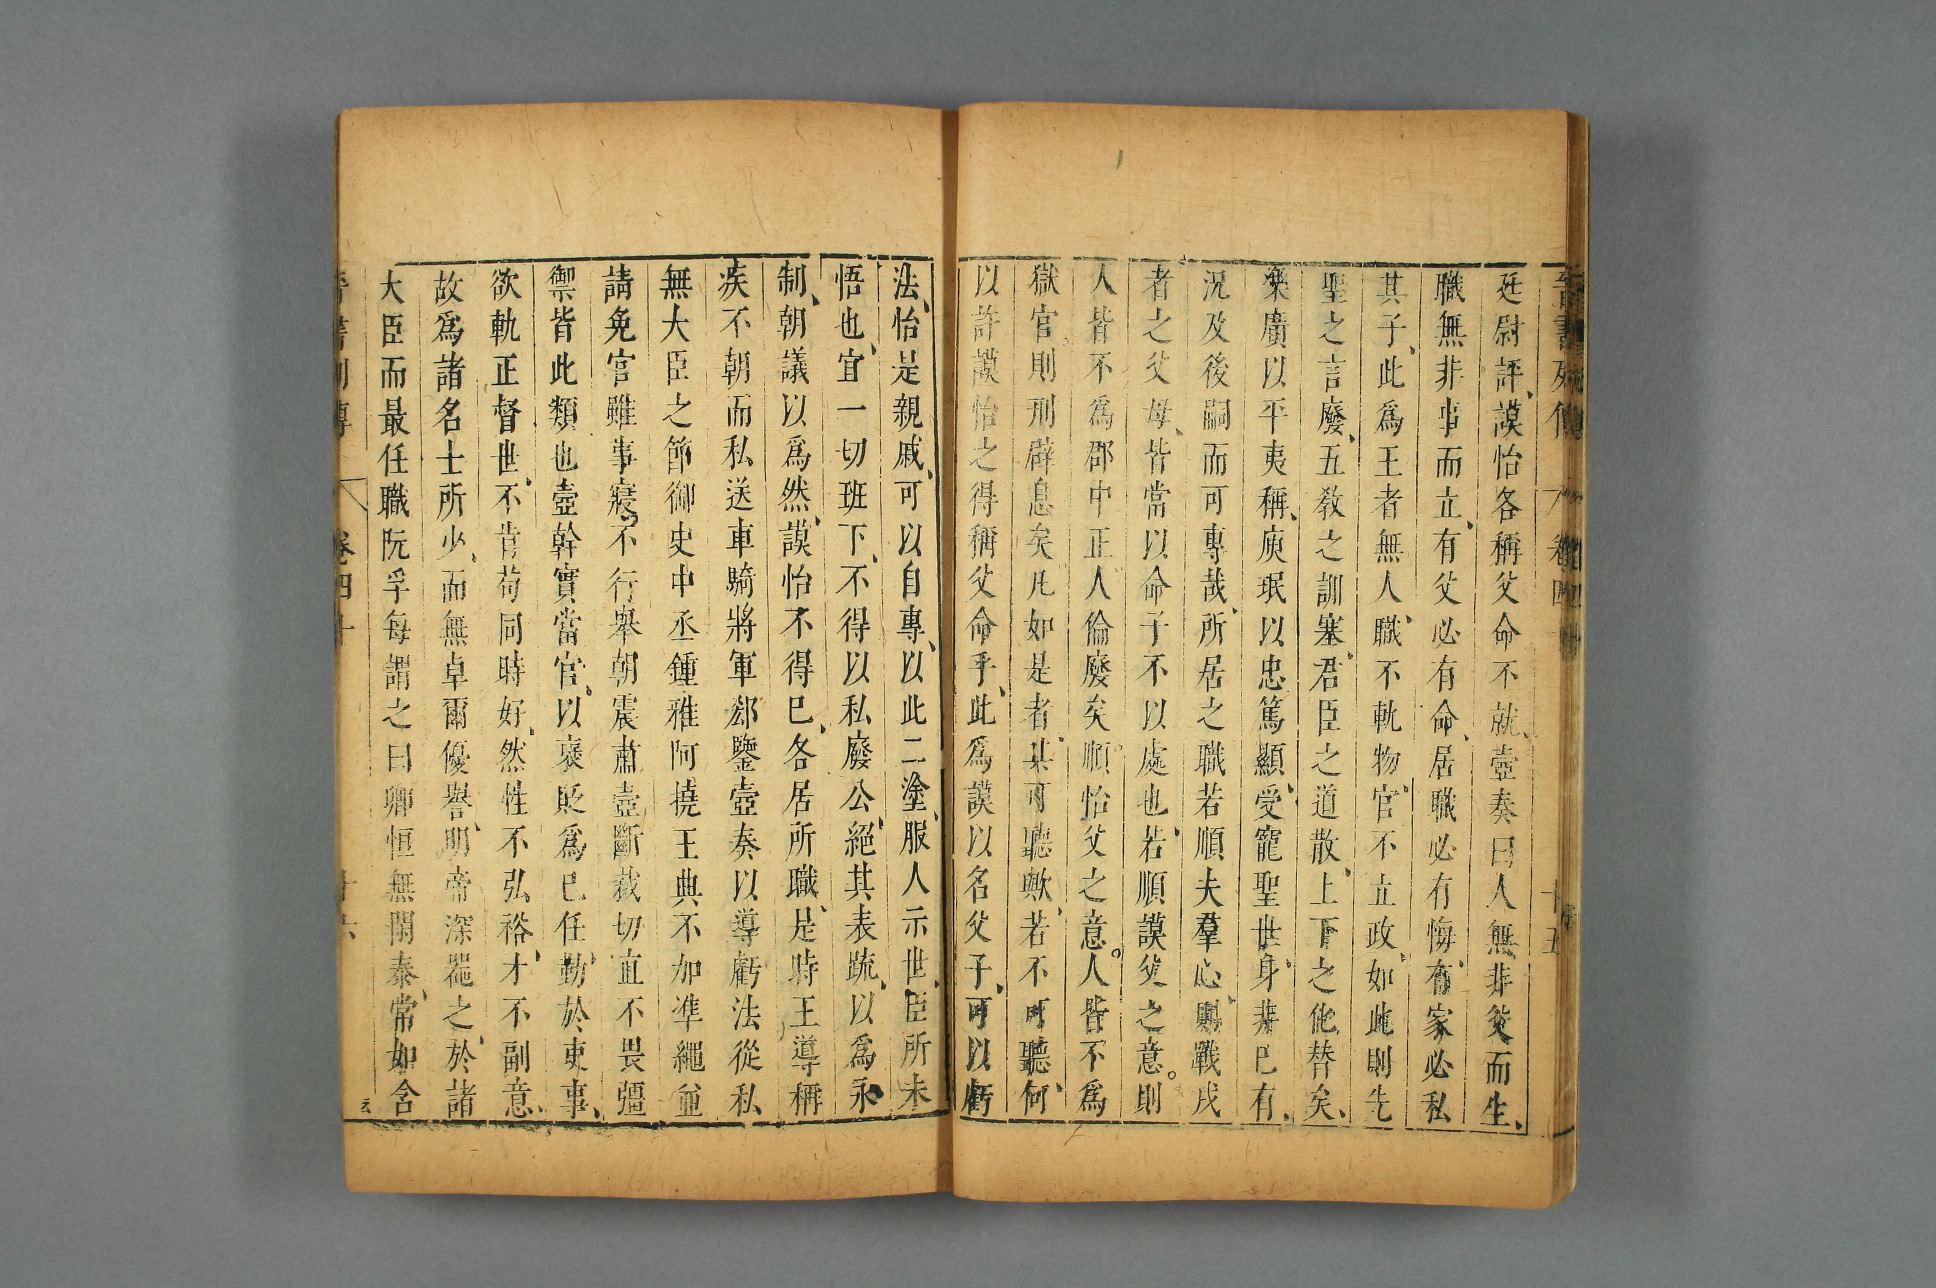 晉書列傳 卷四十 十五
廷尉評、謨怡各稱父命不就、壼奏曰人無非父而生、
職無非事而立、有父必有命、居職必有悔、有家必私
其子、此爲王者無人、職不軌物、官不立政、如此則先
聖之言廢、五敎之訓塞、君臣之道散、上下之化替矣、
樂廣以平夷稱、庾珉以忠篤顯、受寵聖世、身非已有、
況及後嗣而可專哉、所居之職若順夫羣心、則戰戍
者之父母、皆當以命子不以處也、若順謨父之意。則
人皆不爲郡中正、人倫廢矣、順怡父之意。人皆不爲
獄官則刑辟息矣、凡如是者、某可聽歟、若不可聽、何
以許謨怡之得稱父命乎、此爲謨以名父子、可以虧
法、怡是親戚、可以自專、以此二塗、服人示世、臣所未
悟也、宜一切班下、不得以私廢公、絕其表疏、以爲永
制、朝議以爲然、謨怡不得已、各居所職、是時王導稱
疾不朝而私送車騎將軍郄鑒壼奏以導虧法從私
無大臣之節御史中丞鍾雅阿撓王典不加準繩並
請免官雖事寢不行舉朝震肅壼斷裁切直不畏彊
禦皆此類也壼幹實當官、以襃貶爲已任、勤於吏事、
欲軌正督世、不肯苟同時好、然性不弘裕、才不副意、
故爲諸名士所少、而無卓爾優譽、明帝深器之、於諸
大臣而最任職阮孚每謂之曰卿恒無閑泰、常如含
晉書列傳 卷四十 十六